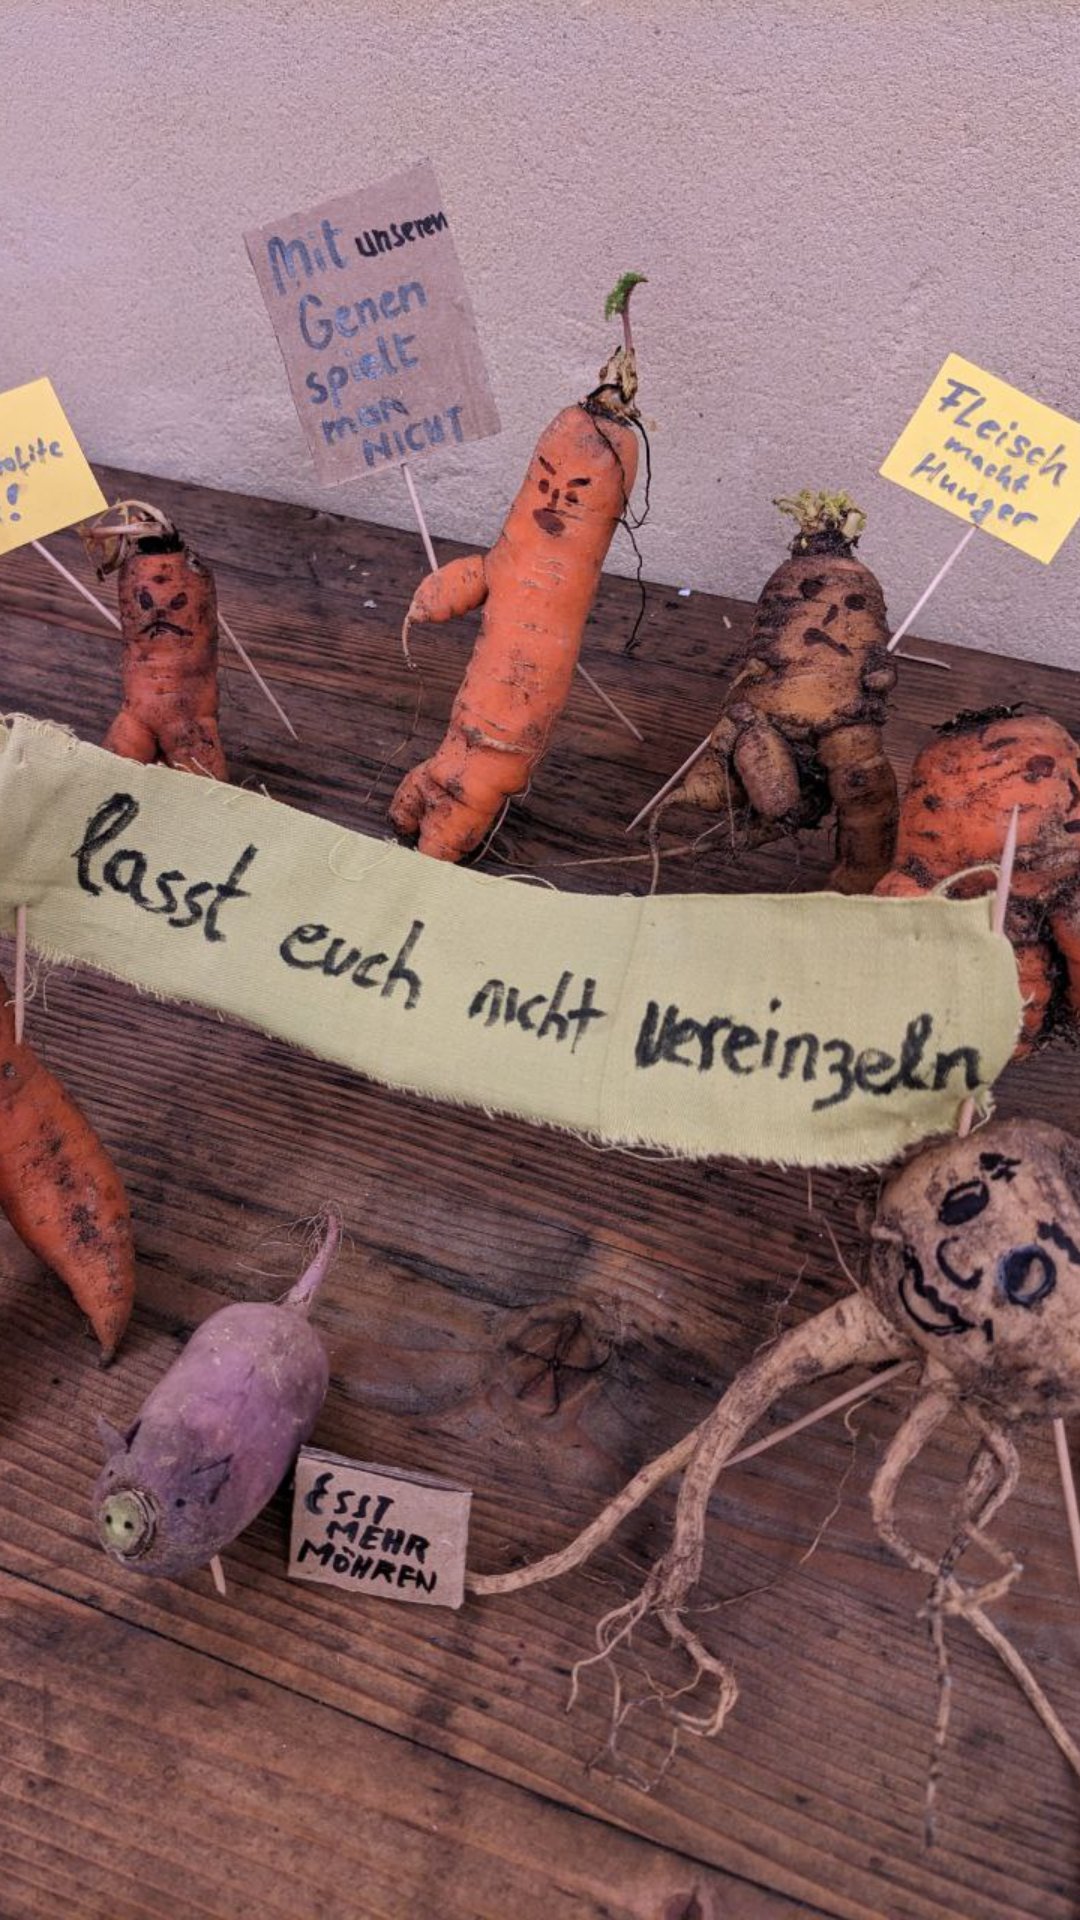 Mit unseren
Genen
spielt
man
NICHT
FLeisch
macht
Hunger
!
lasst euch nicht vereinzeln
ESST
MEHR
MÖHREN